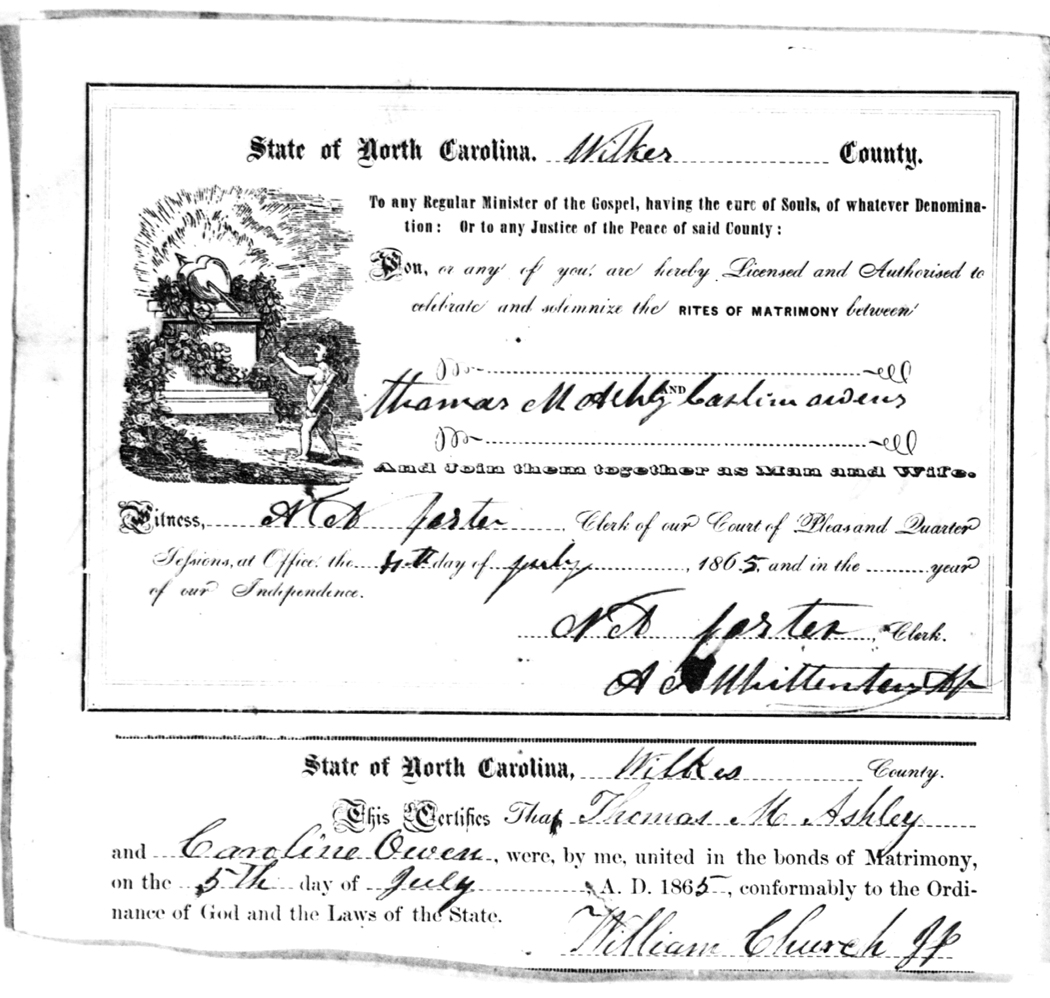 State of North Carolina. Wilkes County.
To any Regular Minister of the Gospel, having the cure of Souls, of whatever Denomina-
tion: Or to any Justice of the Peace of said County:
You, or any of you, are hereby Licensed and Authorised to
celebrate and solemnize the RITES OF MATRIMONY between
AND
Thomas M Ashly Caslin owens
And Join them together as Man and Wife.
Witness, N A foster Clerk of our Court of Pleas and Quarter
Sessions, at Office the 4th day of july, 1865. and in the year
of our Independence.
N A foster, Clerk.
A A Whittenton
State of North Carolina, Wilkes County.
This Certifies That Thomas M Ashley
and Caroline Owen, were, by me, united in the bonds of Matrimony,
on the 5th day of July, A. D. 1865, conformably to the Ordi-
nance of God and the Laws of the State.
William Church JP